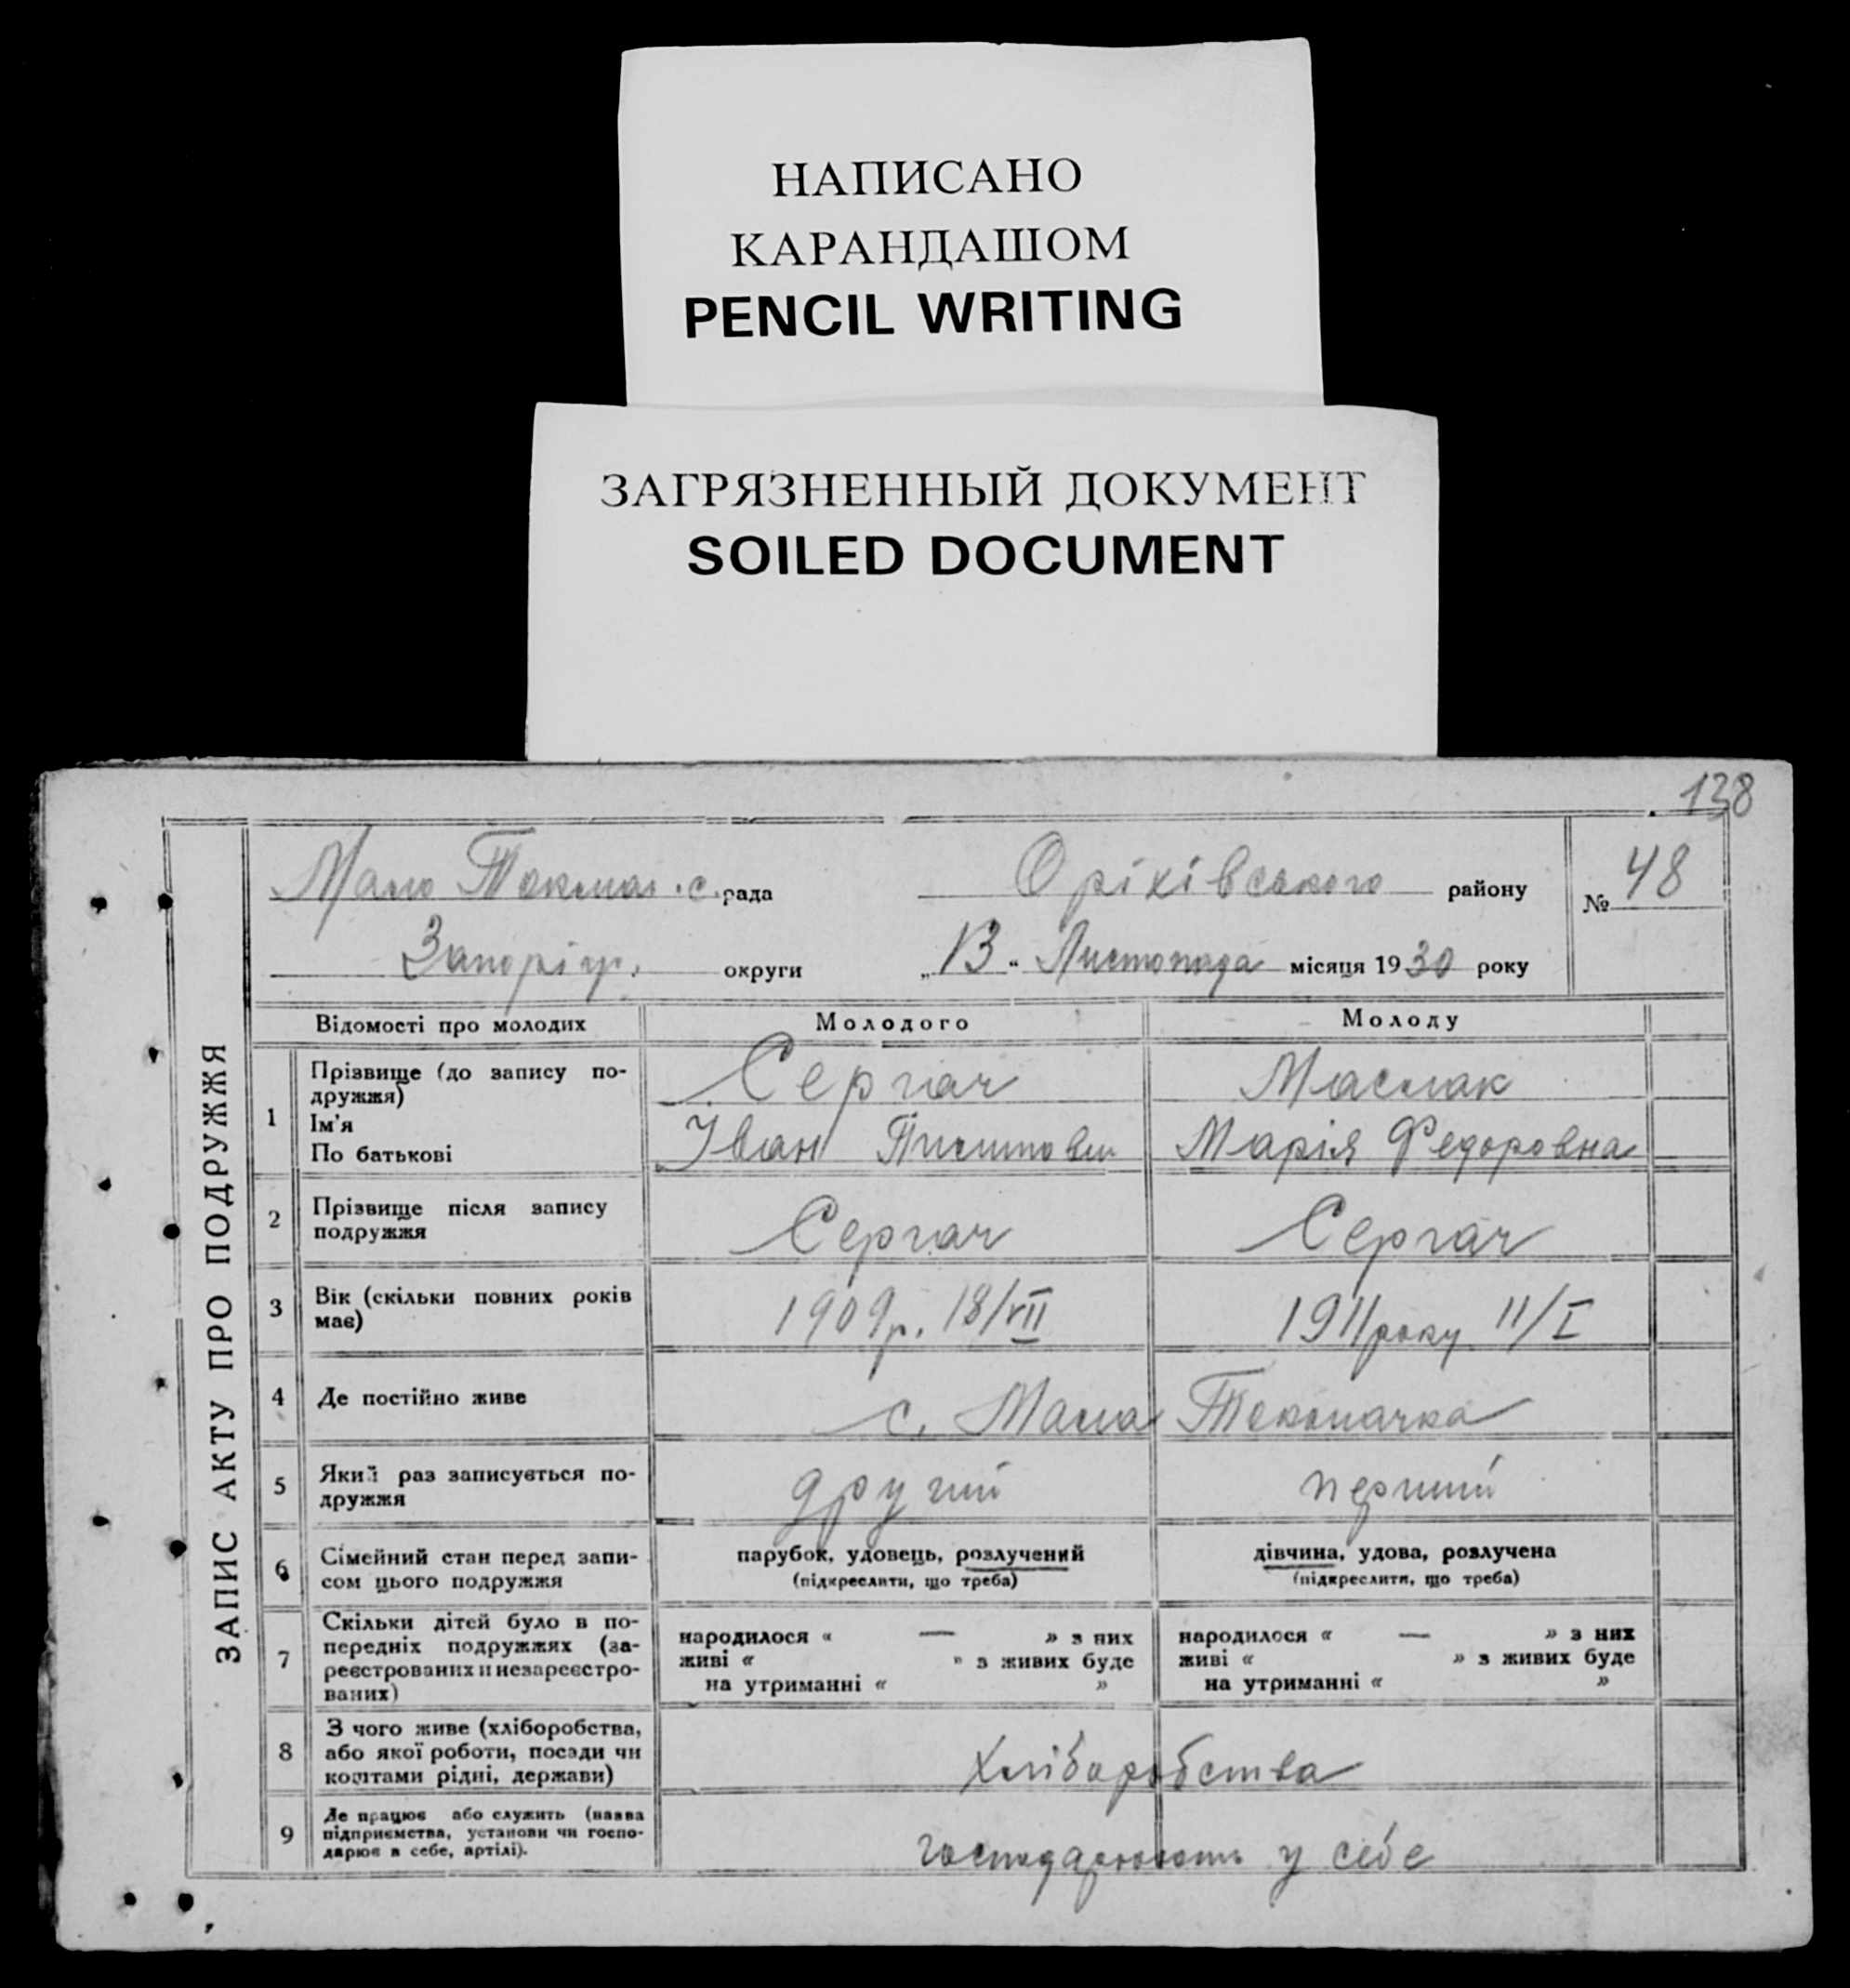 НАПИСАНО
КАРАНДАШОМ
PENCIL WRITING
ЗАГРЯЗНЕННЫЙ ДОКУМЕНТ
SOILED DOCUMENT
138
ЗАПИС АКТУ ПРО ПОДРУЖЖЯ
Мало Токмач. с. рада Оріхівського району № 48
Запоріз. округи „13“ Листопада місяця 1930 року
Відомості про молодих Молодого Молоду
1 Прізвище (до запису по-
дружжя) Сергач Маслак
Ім'я
По батькові Іван Марія Федоровна
2 Прізвище після запису
подружжя Сергач Сергач
3 Вік (скільки повних років
має) 1909р. 18/VII 1911року 11/I
4 Де постійно живе с. Мала Токмачка
5 Який раз записується по-
дружжя другий перший
6 Сімейний стан перед запи-
сом цього подружжя
парубок, удовець, розлучений
(підкреслити, що треба)
дівчина, удова, розлучена
(підкреслити, що треба)
7 Скільки дітей було в по-
передніх подружжях (за-
реєстрованих и незареєстро-
ваних)
народилося « — » з них
живі « » з живих буде
на утриманні « »
народилося « — » з них
живі « » з живих буде
на утриманні « »
8 З чого живе (хліборобства,
або якої роботи, посади чи
коштами рідні, держави) Хліборобства
9 Де працює або служить (назва
підприємства, установи чи госпо-
дарює в себе, артілі). господарюють у себе